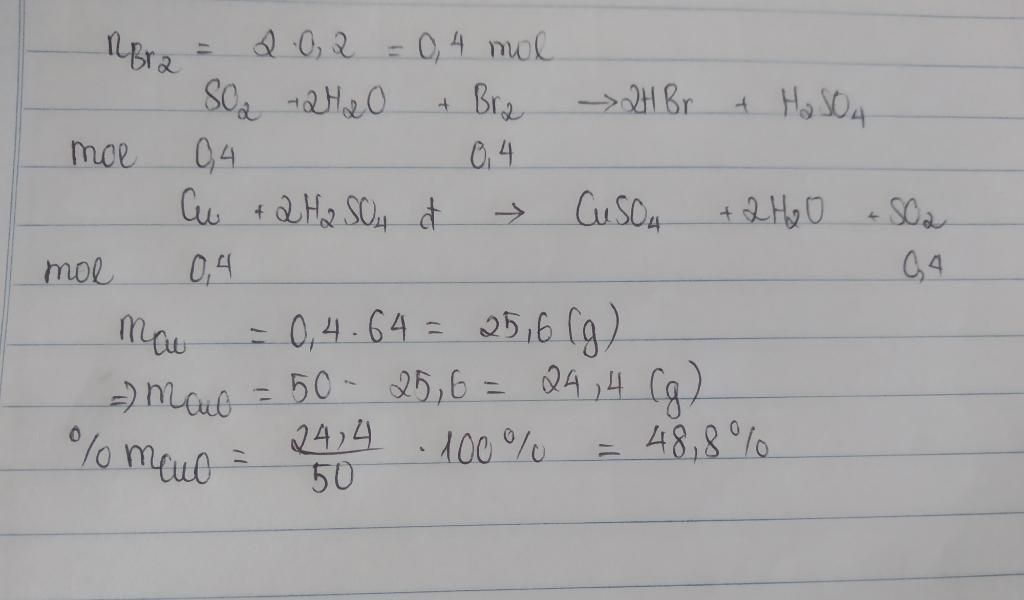 nBr2 = 2.0,2 = 0,4 mol
SO2 + 2H2O + Br2 → 2HBr + H2SO4
mol 0,4 0,4
Cu + 2H2SO4 đ → CuSO4 + 2H2O + SO2
mol 0,4 0,4
mCu = 0,4.64 = 25,6 (g)
⇒ mCuO = 50 - 25,6 = 24,4 (g)
% mCuO = 24,4/50 . 100% = 48,8%